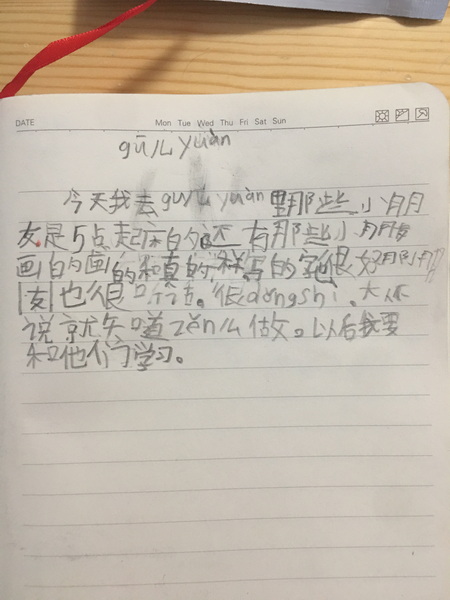 DATE Mon Tue Wed Thu Fri Sat Sun
gū儿yuàn
今天我去gu儿yuàn里那些小朋
友是5点起床的还有那些小朋友
画的画的和真的一样写的字也很好
友也很听话。很dǒngshì。大人不
说就知道zěn么做。以后我要
和他们学习。